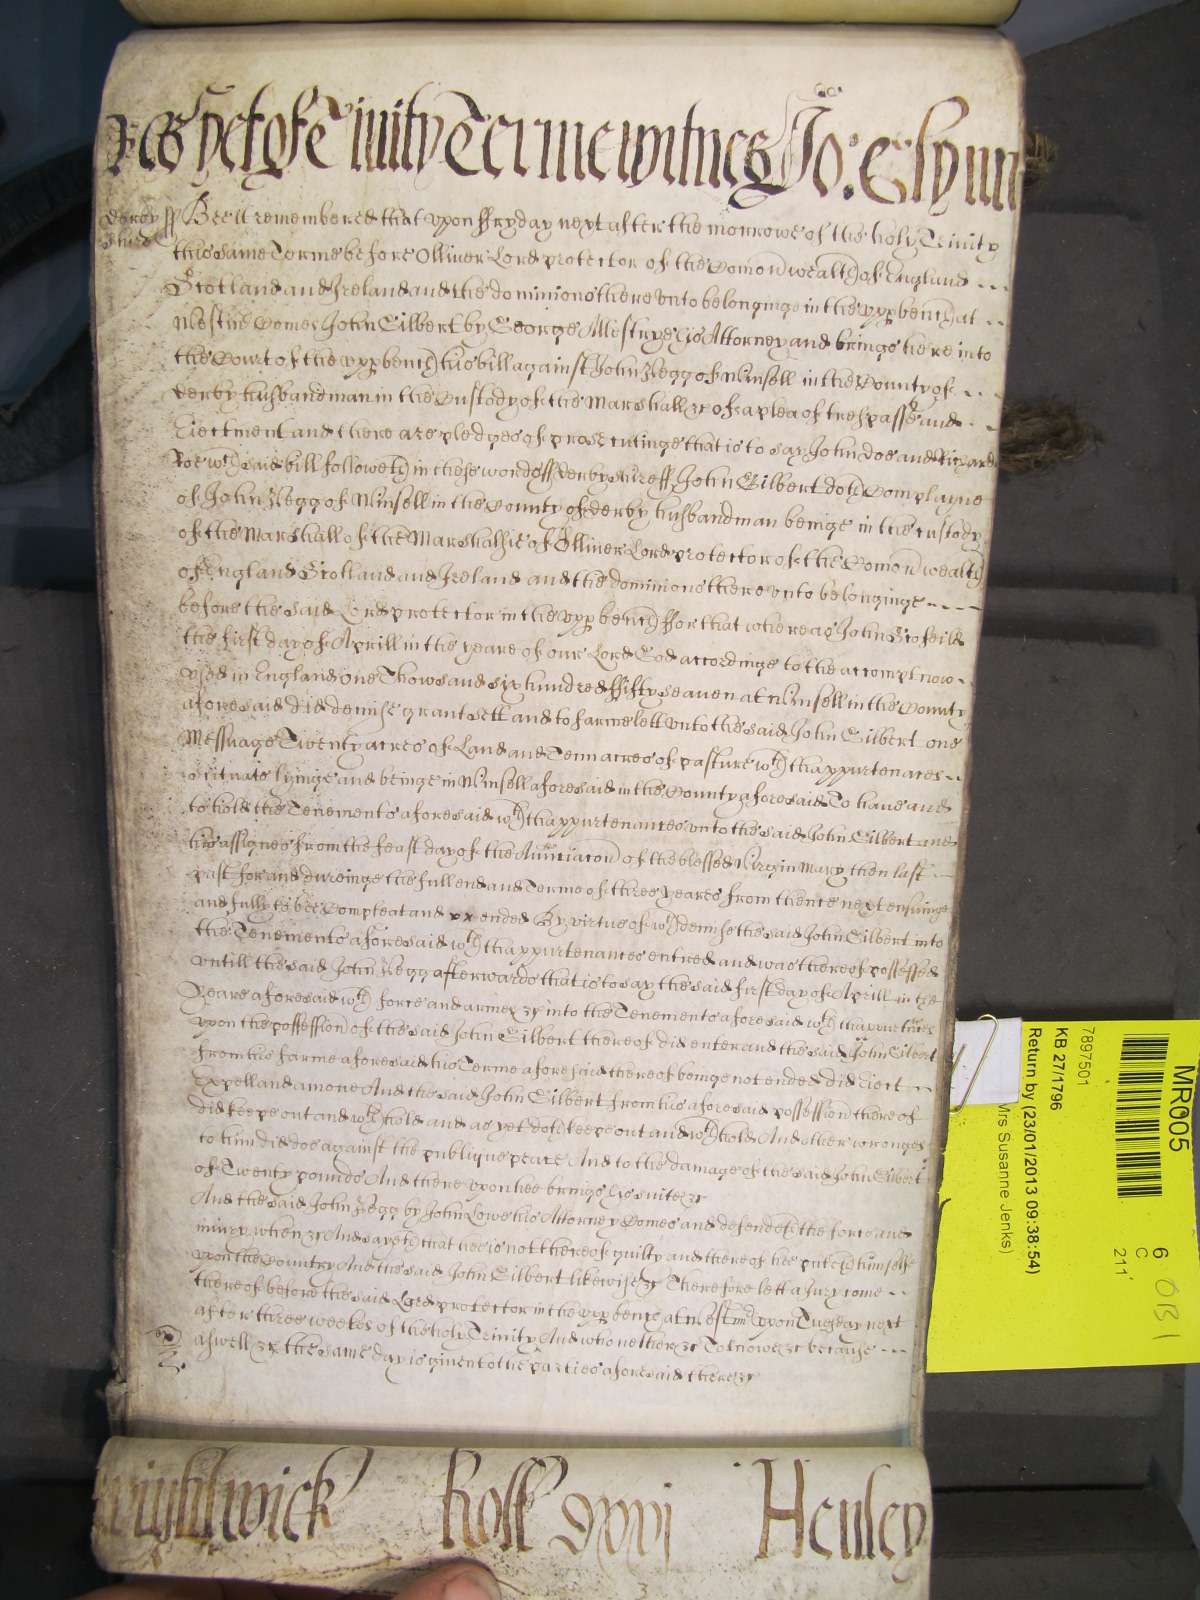 as yet of Trinity Terme witnes Jo: Glynn
Derby ss Bee it remembered that vpon ffryday next after the morrowe of the holy Trinity
this same Terme before Olliuer Lord protector of the Comon wealth of England
Scotland and Ireland and the dominions there vnto belonginge in the vpp bench at
Westmr Comes John Gilbert by George Mestrye his Attorney and brings here into
the Court of the vpp bench his bill against John Kegg of Winsell in the County of
derby husbandman in the Custody of the Marshall &c of a plea of trespasse and
Eiectment and there are pledges of prosecutinge that is to say John doe and Richard
Roe wch said bill followeth in these words ss derby shire ss John Gilbert doth Complayne
of John Kegg of Winsell in the County of derby husbandman beinge in the custody
of the Marshall of the Marshalsie of Olliuer Lord protector of the Comon wealth
of England Scotland and Ireland and the dominions there vnto belonginge
before the said Lord protector in the vpp bench ffor that whereas John Scofeild
the first day of Aprill in the yeare of our Lord God accordinge to the accompt now
vsed in England one Thowsand six hundred ffifty seaven at Winsell in the County
aforesaid did demise grant sett and to farme lett vnto the said John Gilbert one
Messuage Twenty acres of Land and Tenn acres of pasture wth thappurtenances
scituate lyinge and beinge in Winsell aforesaid in the County aforesaid To haue and
to hold the Tenements aforesaid wth thappurtenances vnto the said John Gilbert and
his assignes from the feast day of the Anunciacon of the blessed Virgin Mary then last
past for and dureinge the full end and Terme of three yeares from thence next ensuinge
and fully to bee Compleat and ended By virtue of wch demise the said John Gilbert into
the Tenements aforesaid wth thappurtenances entred and was thereof possessed
vntill the said John Kegg afterwards that is to say the said first day of Aprill in the
Yeare aforesaid wth force and armes &c into the Tenements aforesaid wth thappurtnces
vpon the possession of the said John Gilbert thereof did enter and the said John Gilbert
from his farme aforesaid his Terme aforesaid thereof beinge not ended did Eiect
Expell and amoue And the said John Gilbert from his aforesaid possession thereof
did keepe out and wth hold and as yet doth keepe out and wth hold And other wronges
to him did doe against the publique peace And to the damage of the said John Gilbert
of Twenty pounds And there vpon hee brings his suite &c
And the said John Kegg by John Lowe his Attorney Comes and defendeth the force and
iniury when &c And sayeth that hee is not thereof guilty and thereof hee puteth himselfe
vpon the Country And the said John Gilbert likewise &c Therefore lett a Jury come
thereof before the said Lord protector in the vpp bench at Westmr vpon Tuesday next
after three weekes of the holy Trinity And who neither &c To knowe &c because
aswell &c the same day is giuen to the parties aforesaid there &c
Roll
Henley
3
MR005
6
C
211
7897501
KB 27/1796
Return by (23/01/2013 09:38:54)
Mrs Susanne Jenks)
OBI